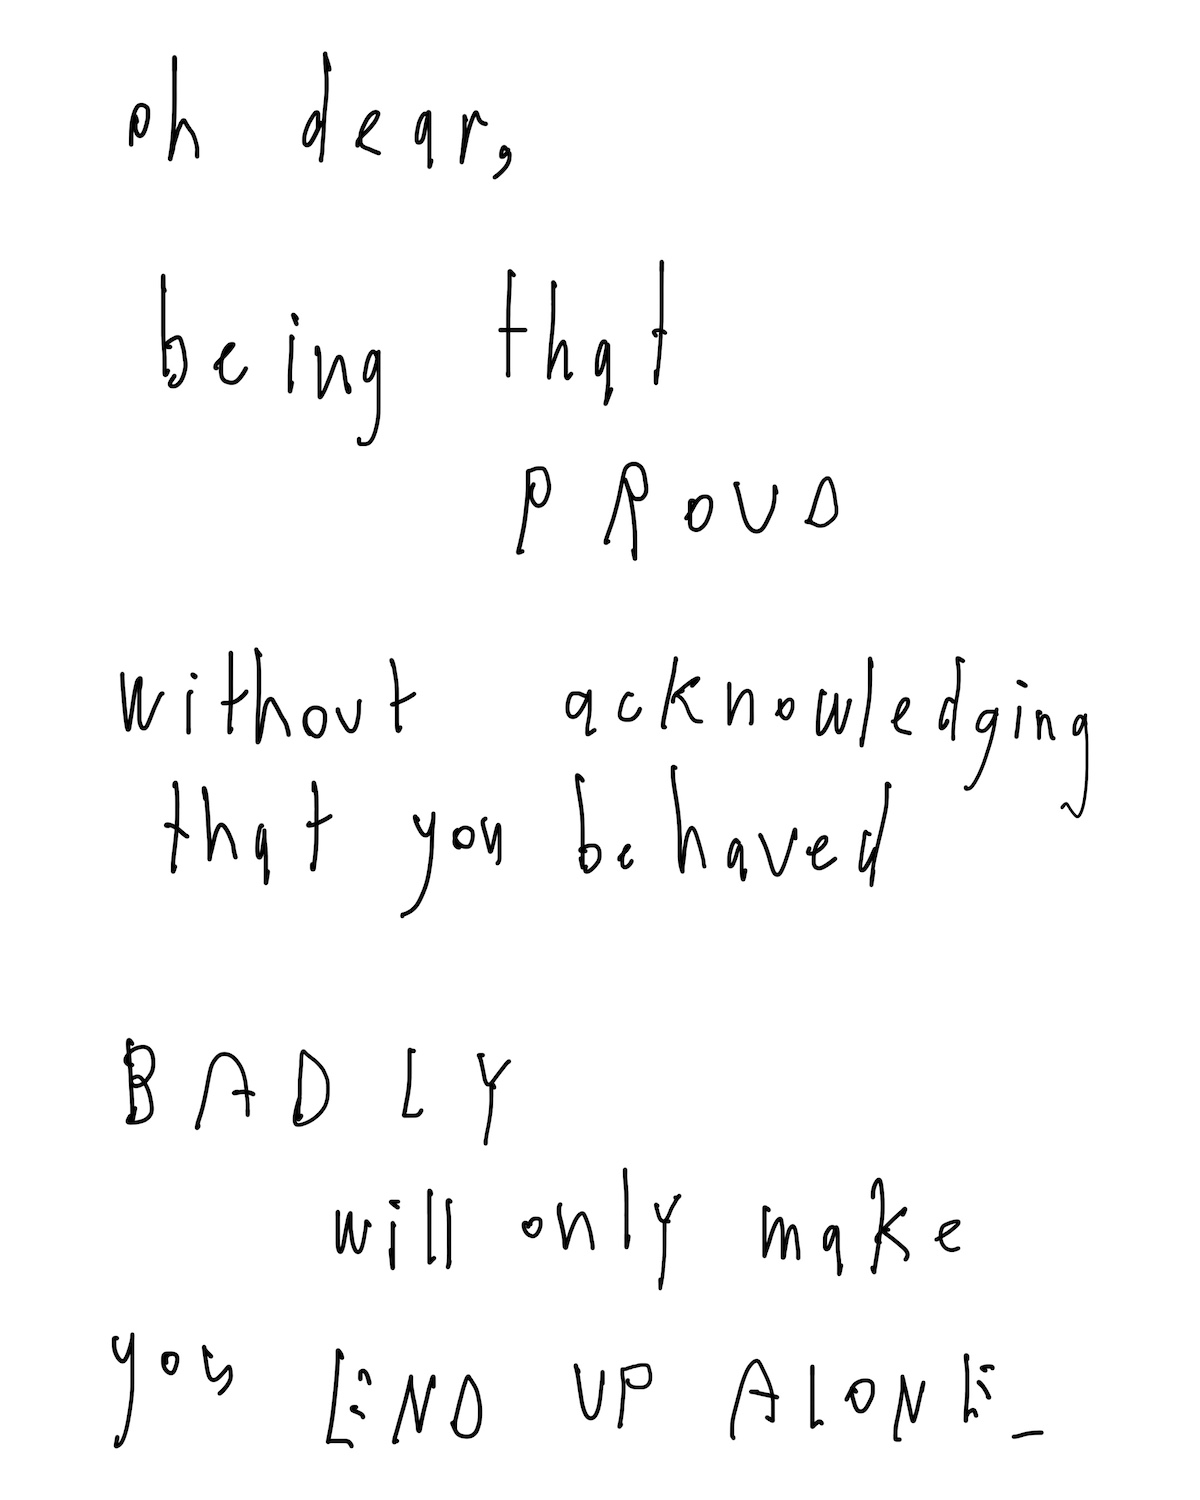 oh dear,
being that
PROUD
without acknowledging
that you behaved
BADLY
will only make
you END UP ALONE_